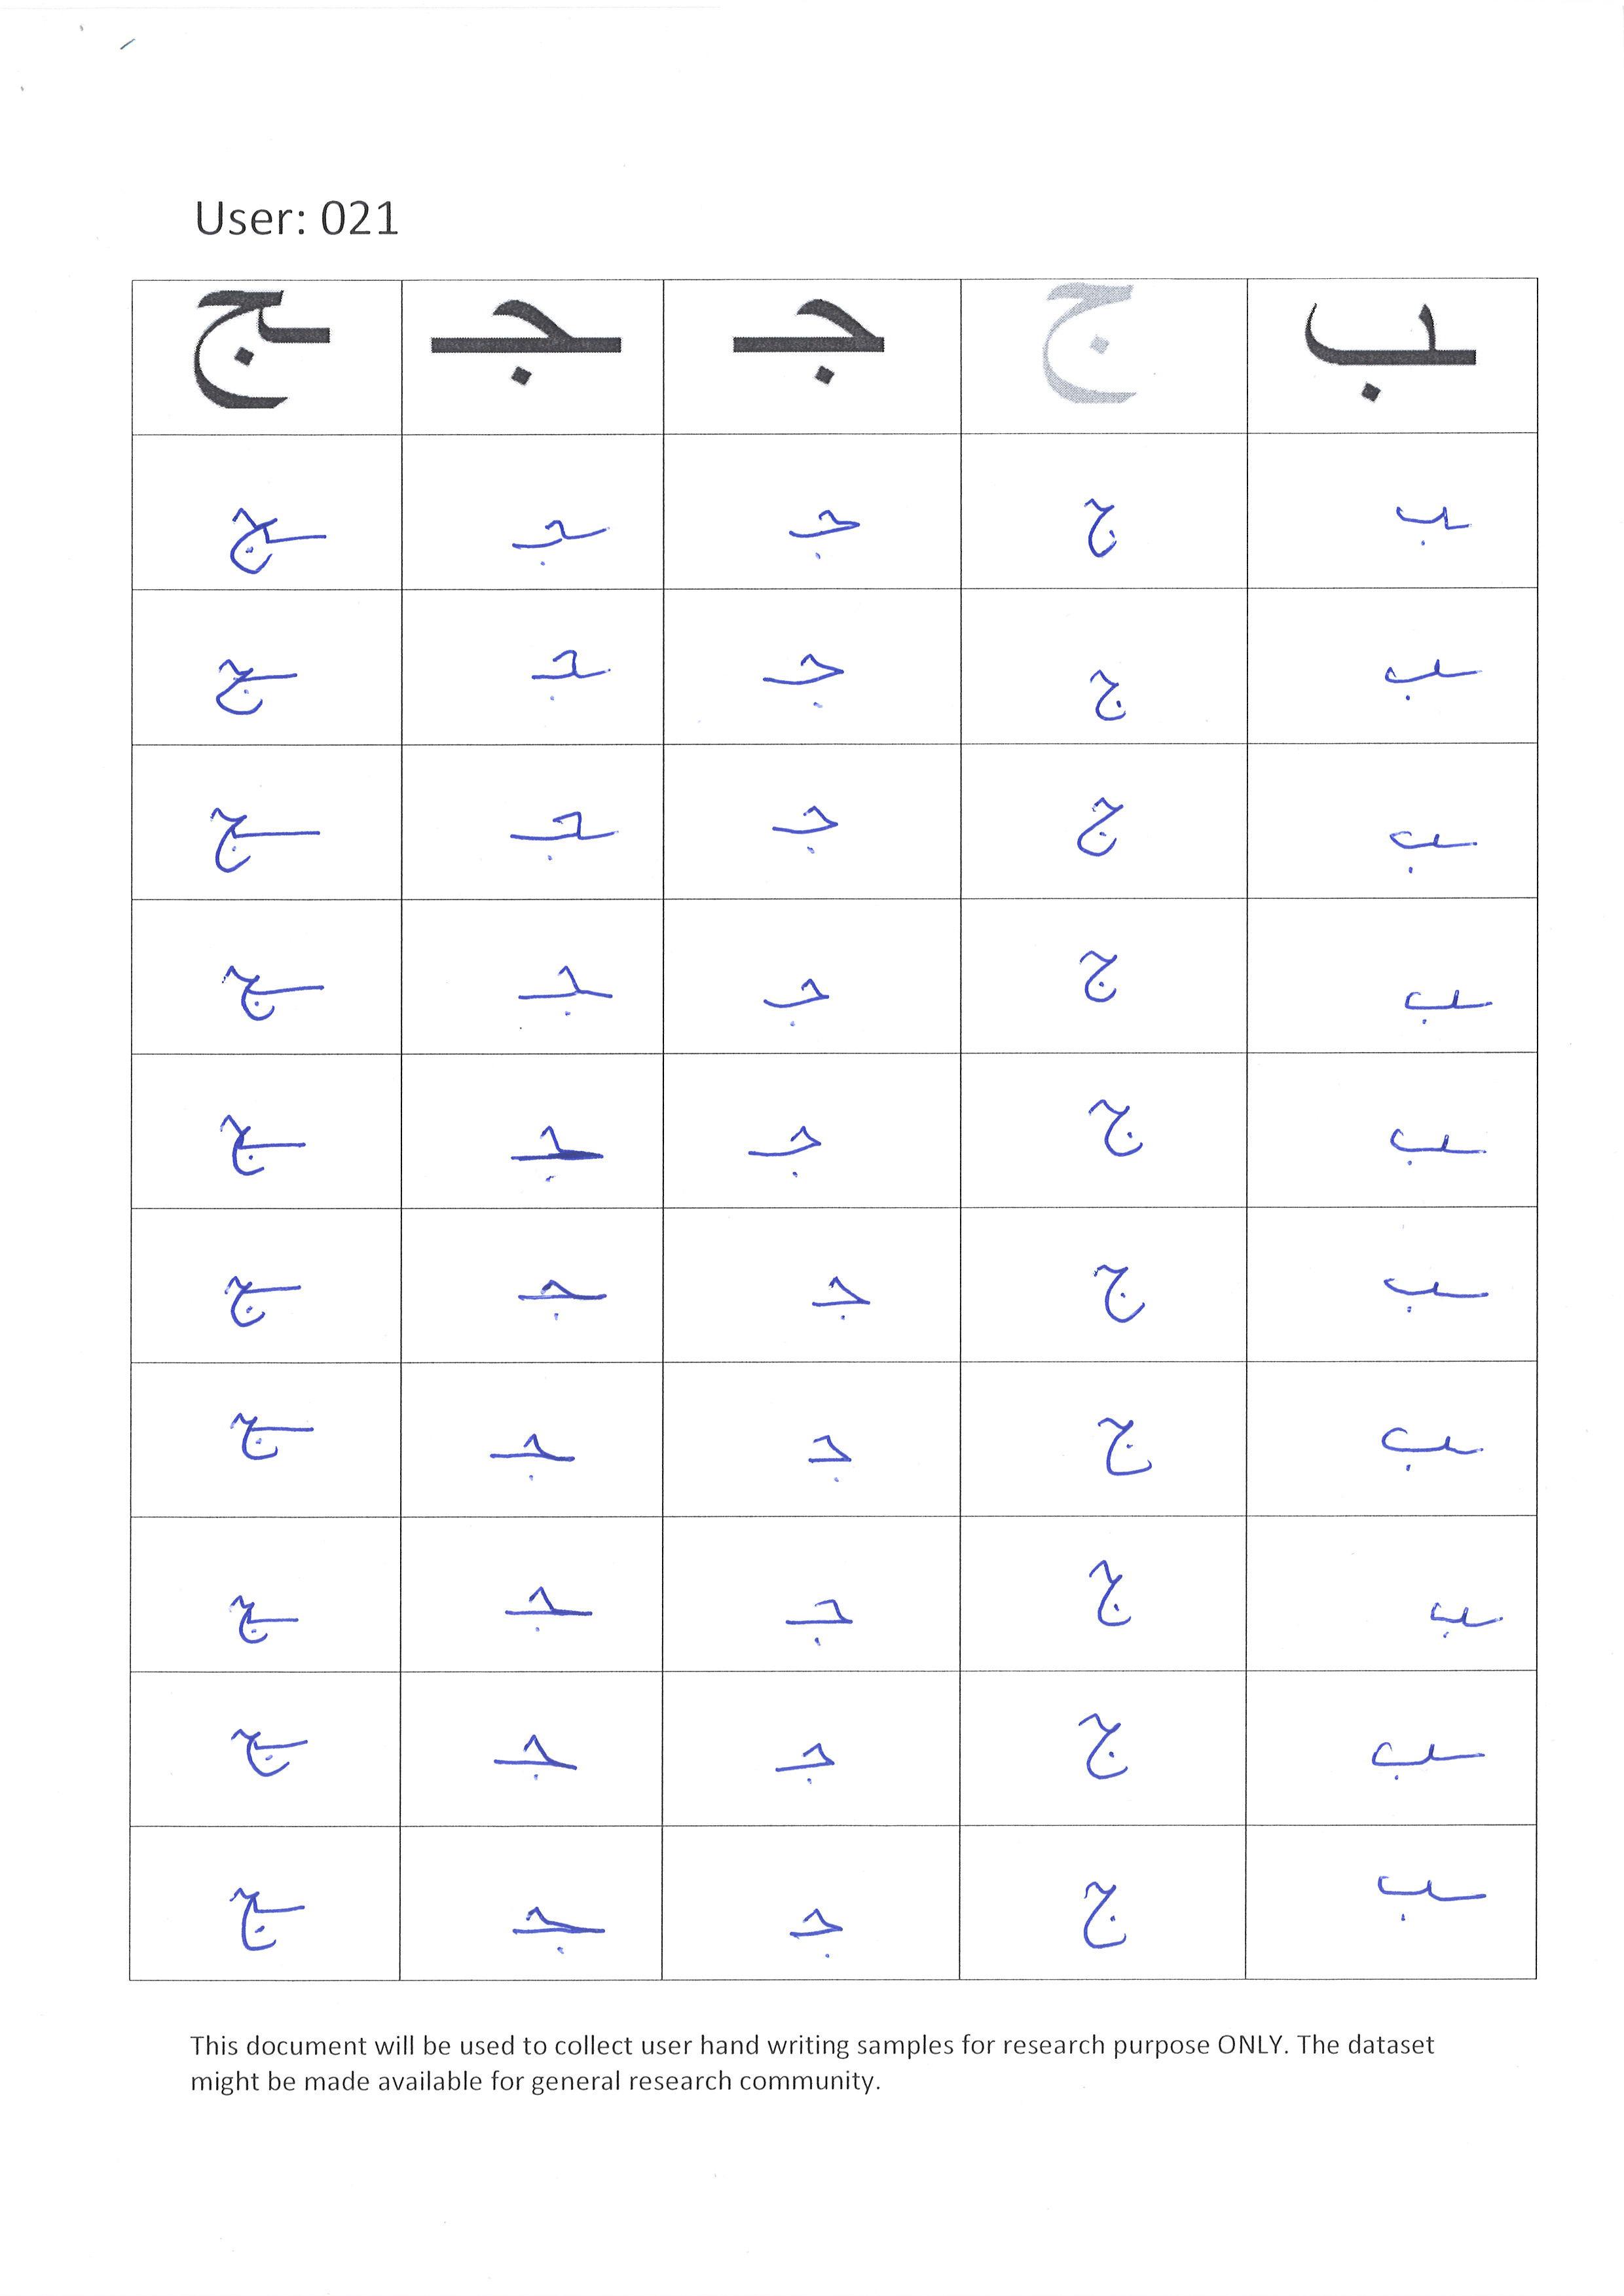 User: 021
ـب ج جـ ـجـ ـج
ـب ج جـ ـجـ ـج
ـب ج جـ ـجـ ـج
ـب ج جـ ـجـ ـج
ـب ج جـ ـجـ ـج
ـب ج جـ ـجـ ـج
ـب ج جـ ـجـ ـج
ـب ج جـ ـجـ ـج
ـب ج جـ ـجـ ـج
ـب ج جـ ـجـ ـج
ـب ج جـ ـجـ ـج
This document will be used to collect user hand writing samples for research purpose ONLY. The dataset
might be made available for general research community.